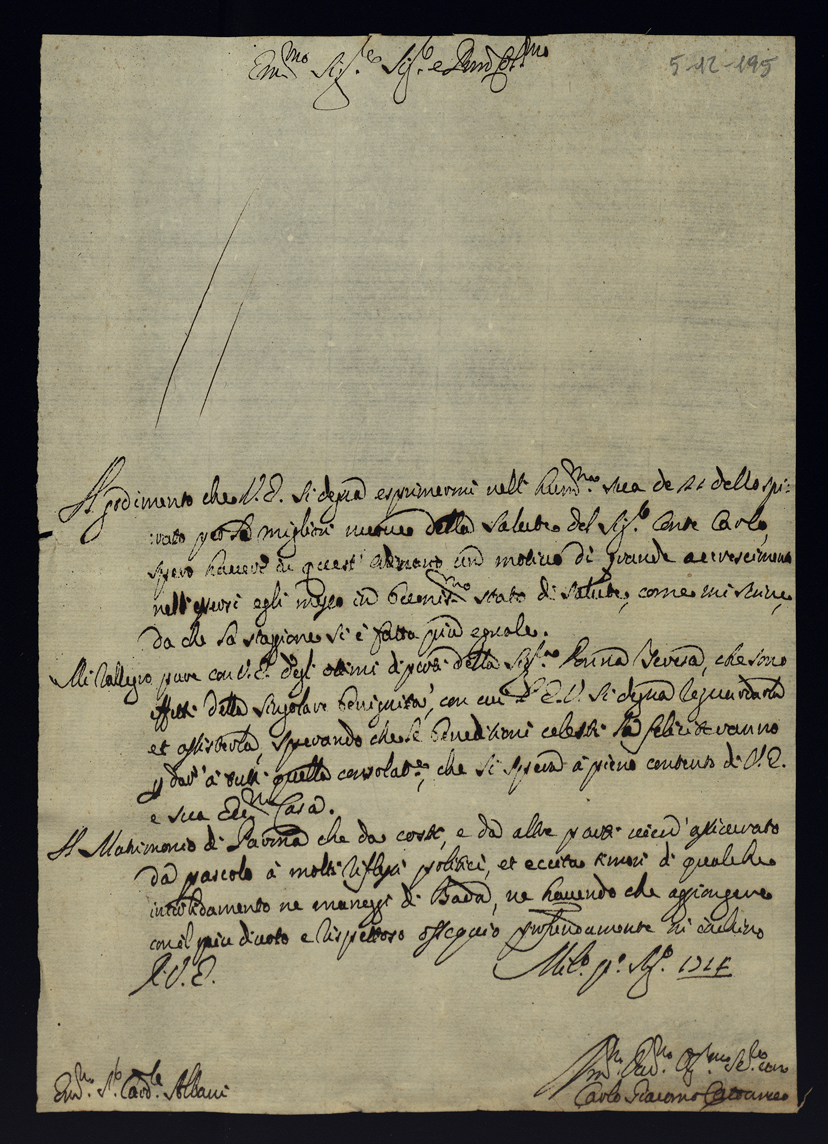 Em.mo Sig.re Sig.re e Pad.
5-12-195
Il godimento che V. E. si degna esprimermi nell' hum.ma sua de 21 dello spi:
rato per le migliori nuove della salute del Sig.r Conte Carlo,
spero haverà in quest' Autunno un motivo di grande accrescimento
nell' essersi egli messo in stato di salute, come mi scrive,
da che la stagione si è fatta più eguale.
Mi rallegro pure con V. E. degli ottimi diporti della Sig.ra Donna Teresa, che sono
effetti della singolare benignità, con cui l' E. V. si degna
et assisterla, sperando che le benedittioni celesti la
p dar' à tutti quella consolat.e, che si spera à pieno contento di V. E.
e sua Ecc.ma Casa.
Il Matrimonio di Parma che da costì, e da altre parti vien' assicurato
dà pascolo à molti riflessi politici, et eccita timori di qualche
ne maneggi di Bada, ne havendo che aggiongere
con il più divoto e rispettoso ossequio profondamente mi inchino
D. V. E.
Mil.o p.o 1714
Em.mo S.r Card.le Albani
Carlo Giacomo